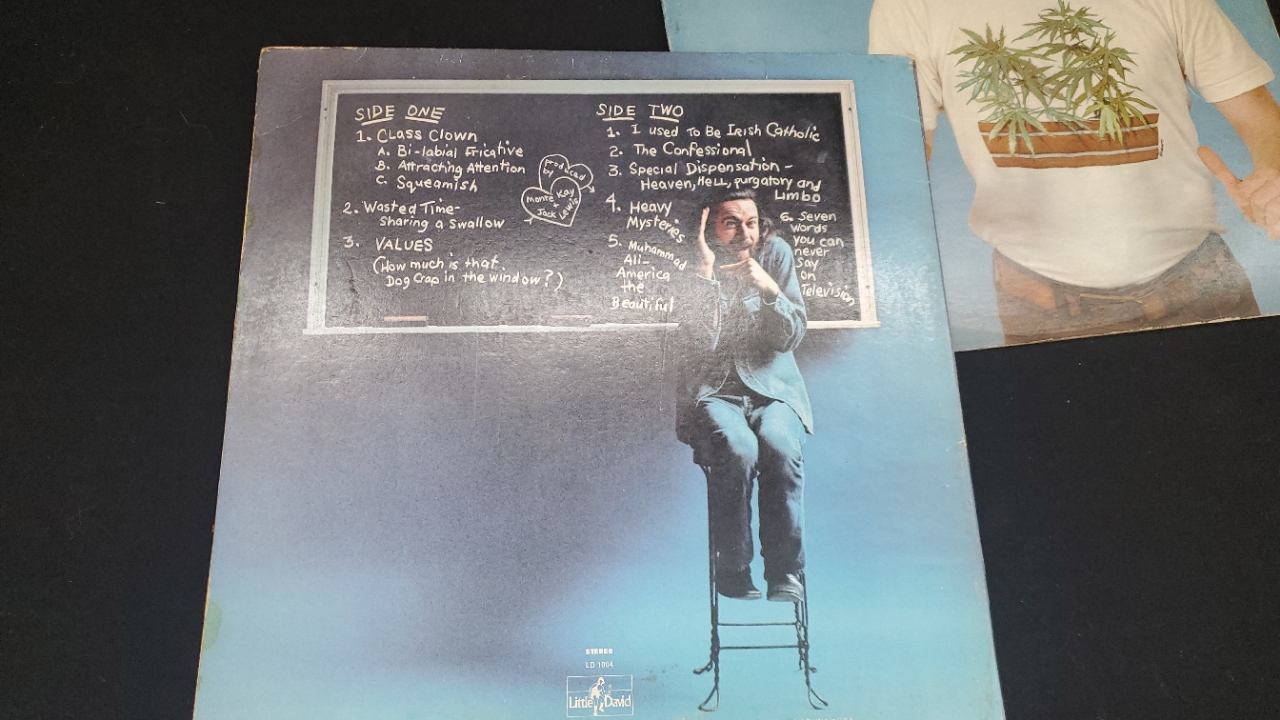 SIDE ONE
1. Class Clown
A. Bi-labial Fricative
B. Attracting Attention
C. Squeamish
2. Wasted Time-
Sharing a Swallow
3. VALUES
(How much is that
Dog Crap in the window?)
Produced
by
Monte Kay
+
Jack Lewis
SIDE TWO
1. I used To Be Irish Catholic
2. The Confessional
3. Special Dispensation -
Heaven, Hell, purgatory and
Limbo
4. Heavy
Mysteries
5. Muhammad
Ali-
America
the
Beautiful
6. Seven
words
you can
never
Say
on
Television
STEREO
LD 1004
Little David